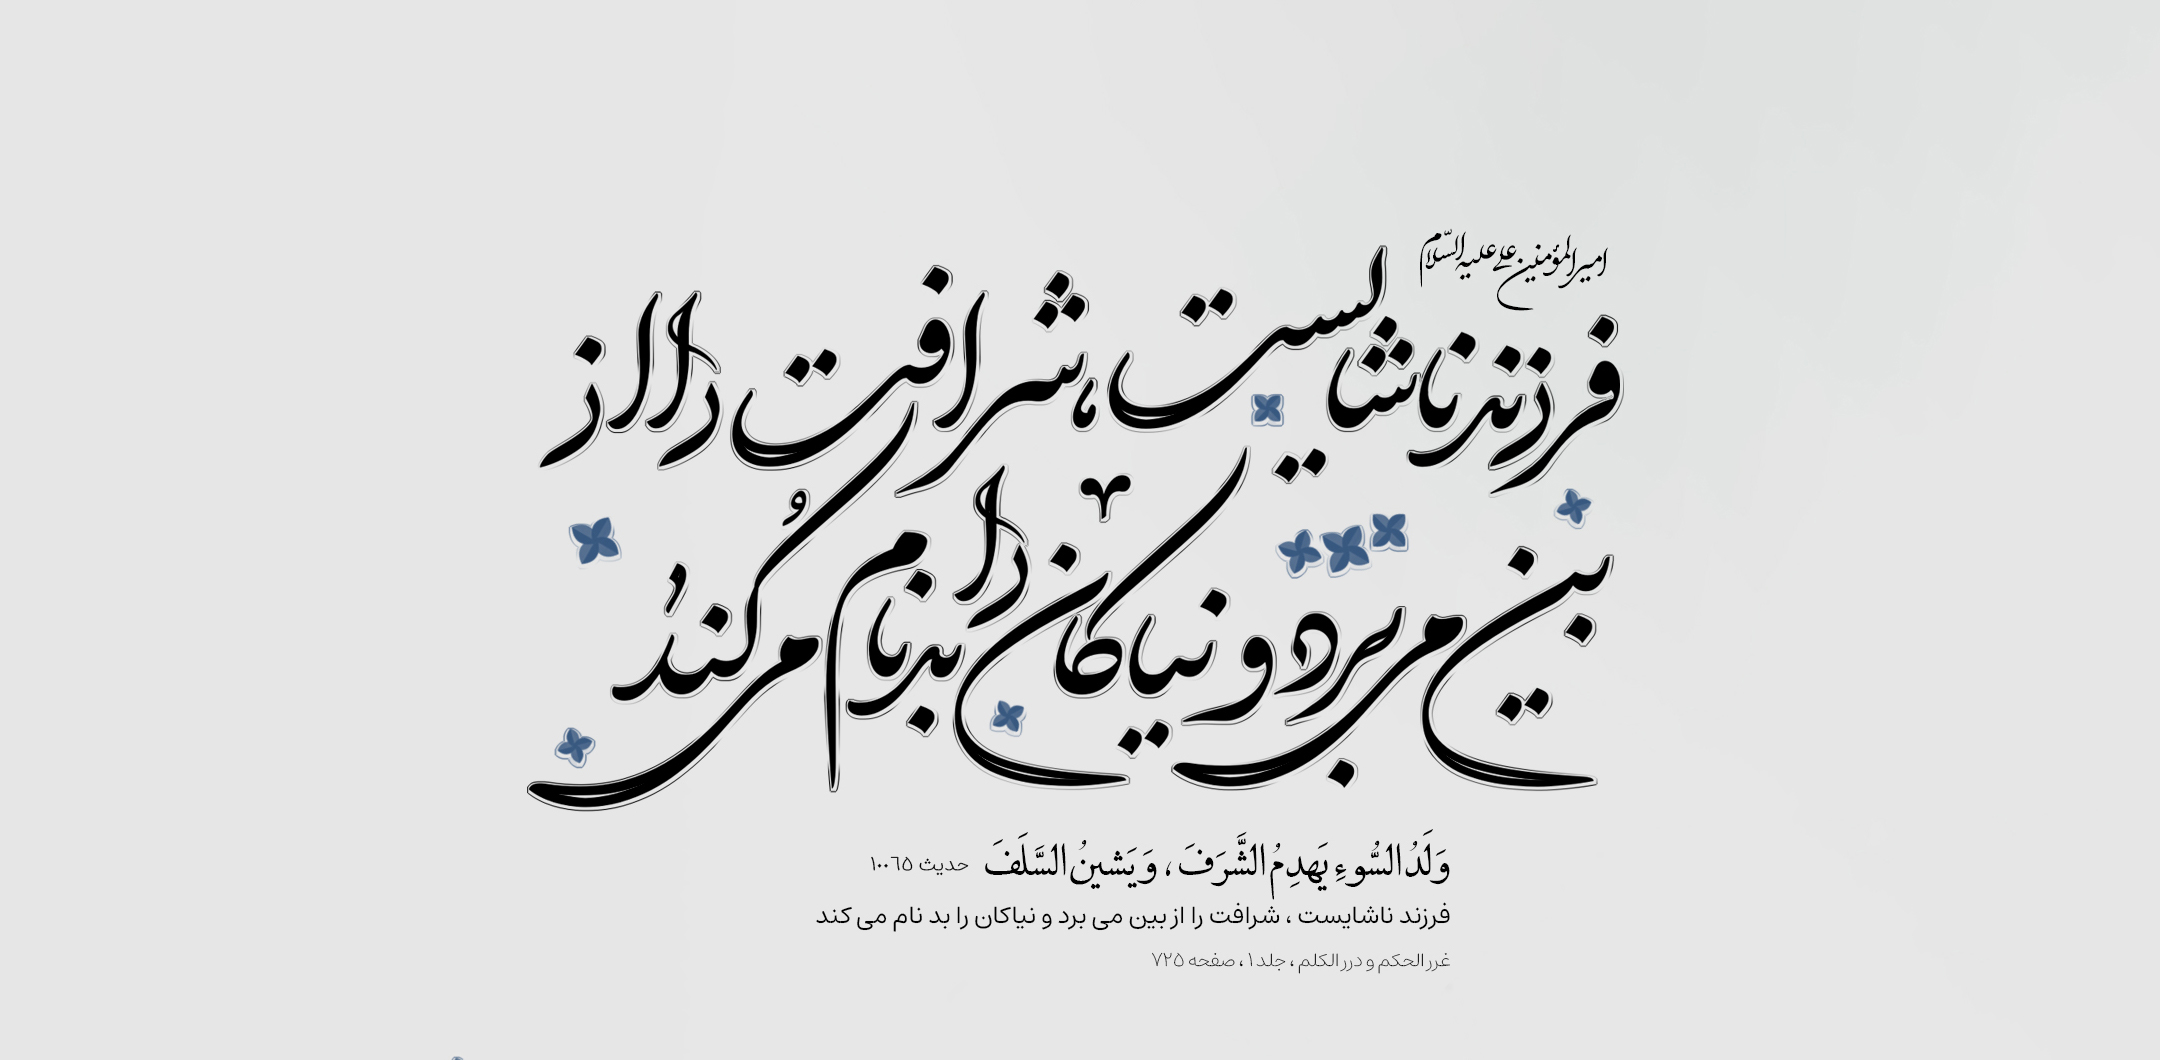 امیرالمؤمنین علی علیه السّلام
فرزند ناشایست، شرافت را از
بین می برد و نیاکان را بدنام می کُند
وَلَدُ السُّوءِ یَهدِمُ الشَّرَفَ ، وَ یَشینُ السَّلَفَ حدیث ١٠٠٦٥
فرزند ناشایست ، شرافت را از بین می برد و نیاکان را بد نام می کند
غرر الحکم و درر الکلم ، جلد ۱ ، صفحه ۷۲۵